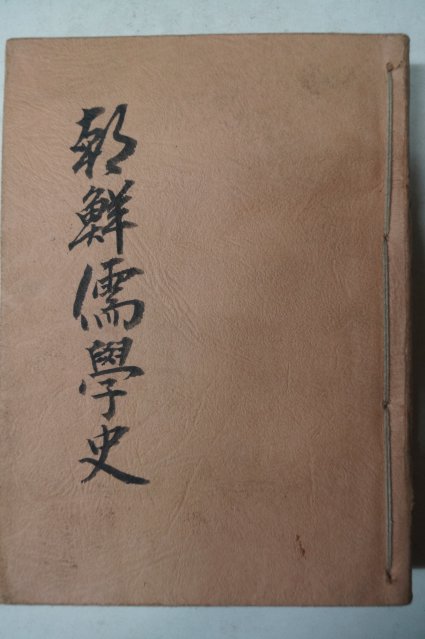 朝鮮儒學史